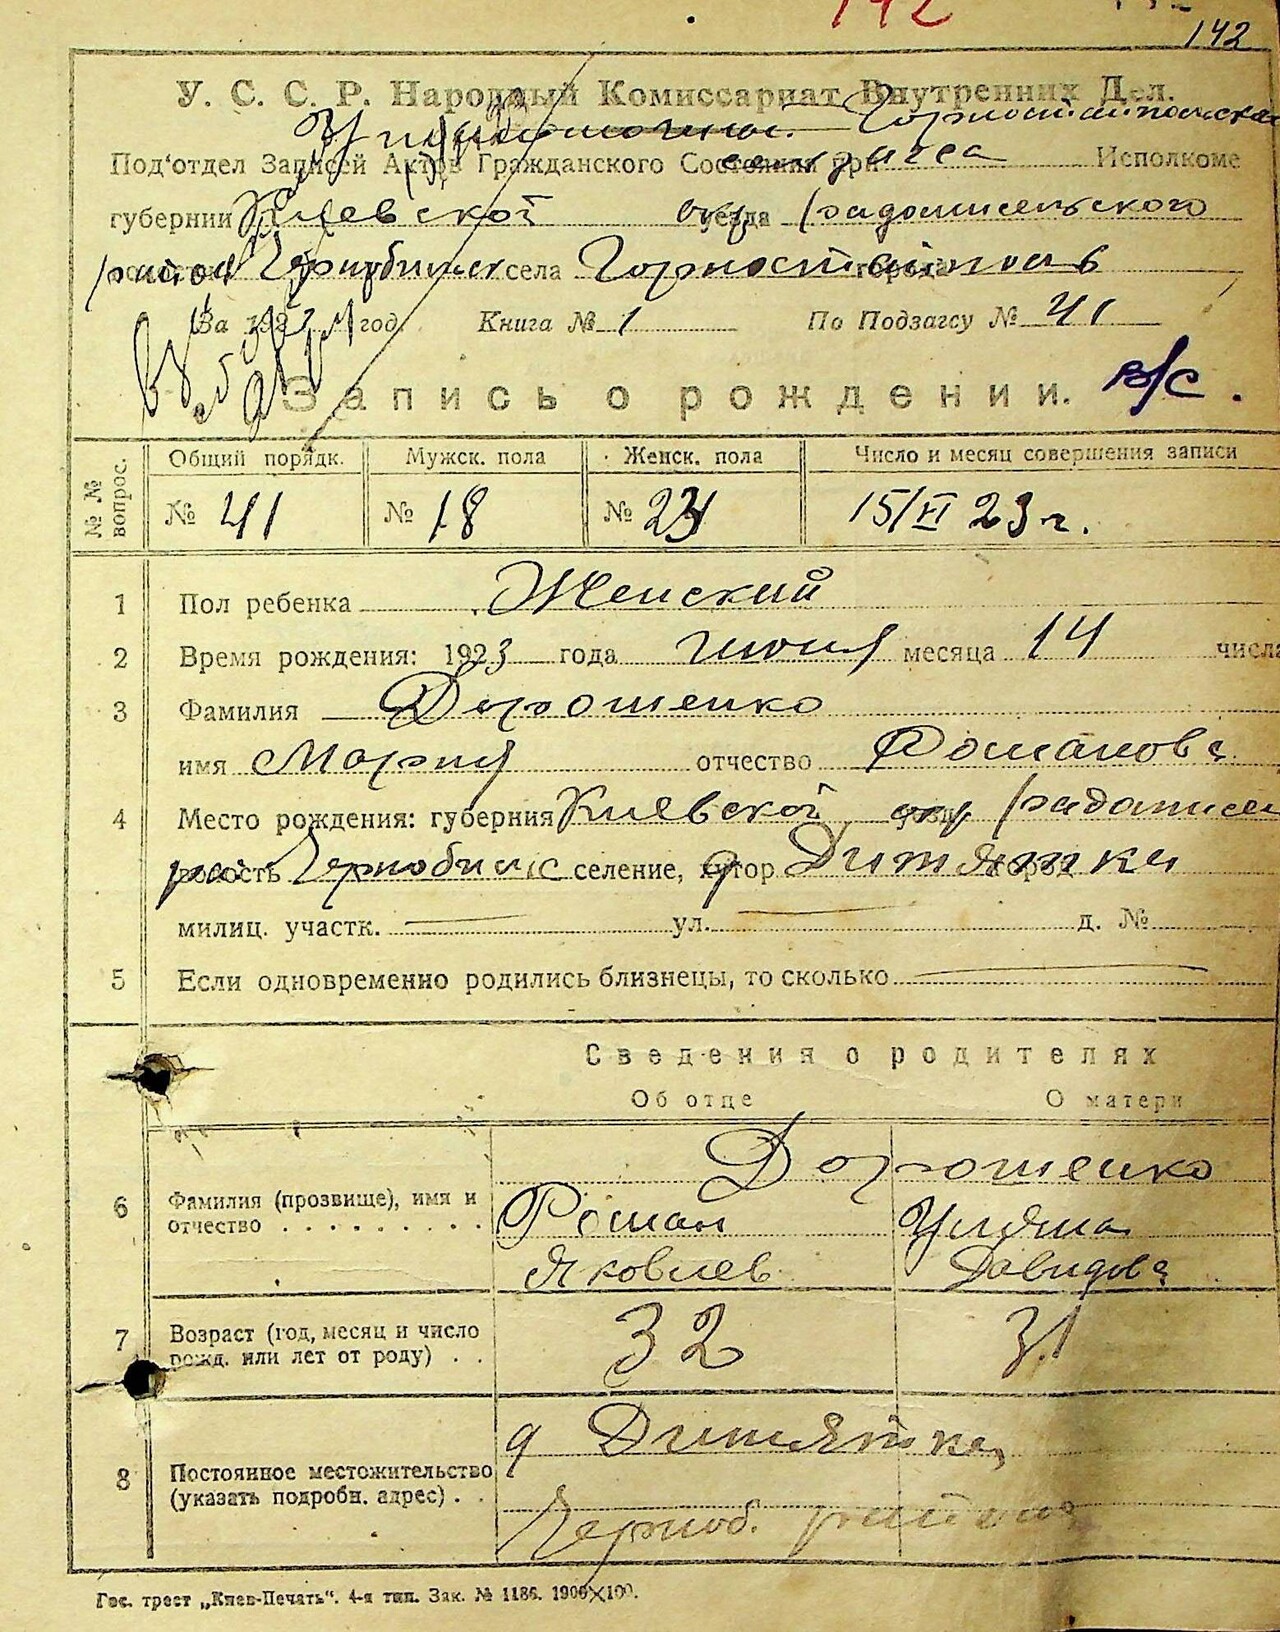 142
142
У. С. С. Р. Народный Комиссариат Внутренних Дел.
Под'отдел Записей Актов Гражданского Состояния при Исполкоме
губернии Киевской окр уезда Радомисельского
район села Горностайполь города
За 1923 год. Книга № 1 По Подзагсу № 41
Запись о рождении. в/с.
№№ вопрос. Общий порядк. Мужск. пола Женск. пола Число и месяц совершения записи
№ 41 № 18 № 23 15/VI 23 г.
1 Пол ребенка Женский
2 Время рождения: 1923 года июня месяца 14 числа
3 Фамилия Дорошенко
имя Мария отчество Романова
4 Место рождения: губерния Киевской окр уезд Радомисел
рай волость Чернобильс селение, хутор д Дитятки город
милиц. участк. ул. д. №
5 Если одновременно родились близнецы, то сколько
Сведения о родителях
Об отце О матери
Дорошенко
6 Фамилия (прозвище), имя и Роман Улияна
отчество . . . . . . . . . Яковлев Давидова
7 Возраст (год, месяц и число 32 31
рожд. или лет от роду) . .
д Дитятках
8 Постоянное местожительство
(указать подробн. адрес) . .
Черноб. района
Гос. трест „Киев-Печать“. 4-я тип. Зак. № 1186. 1900×100.